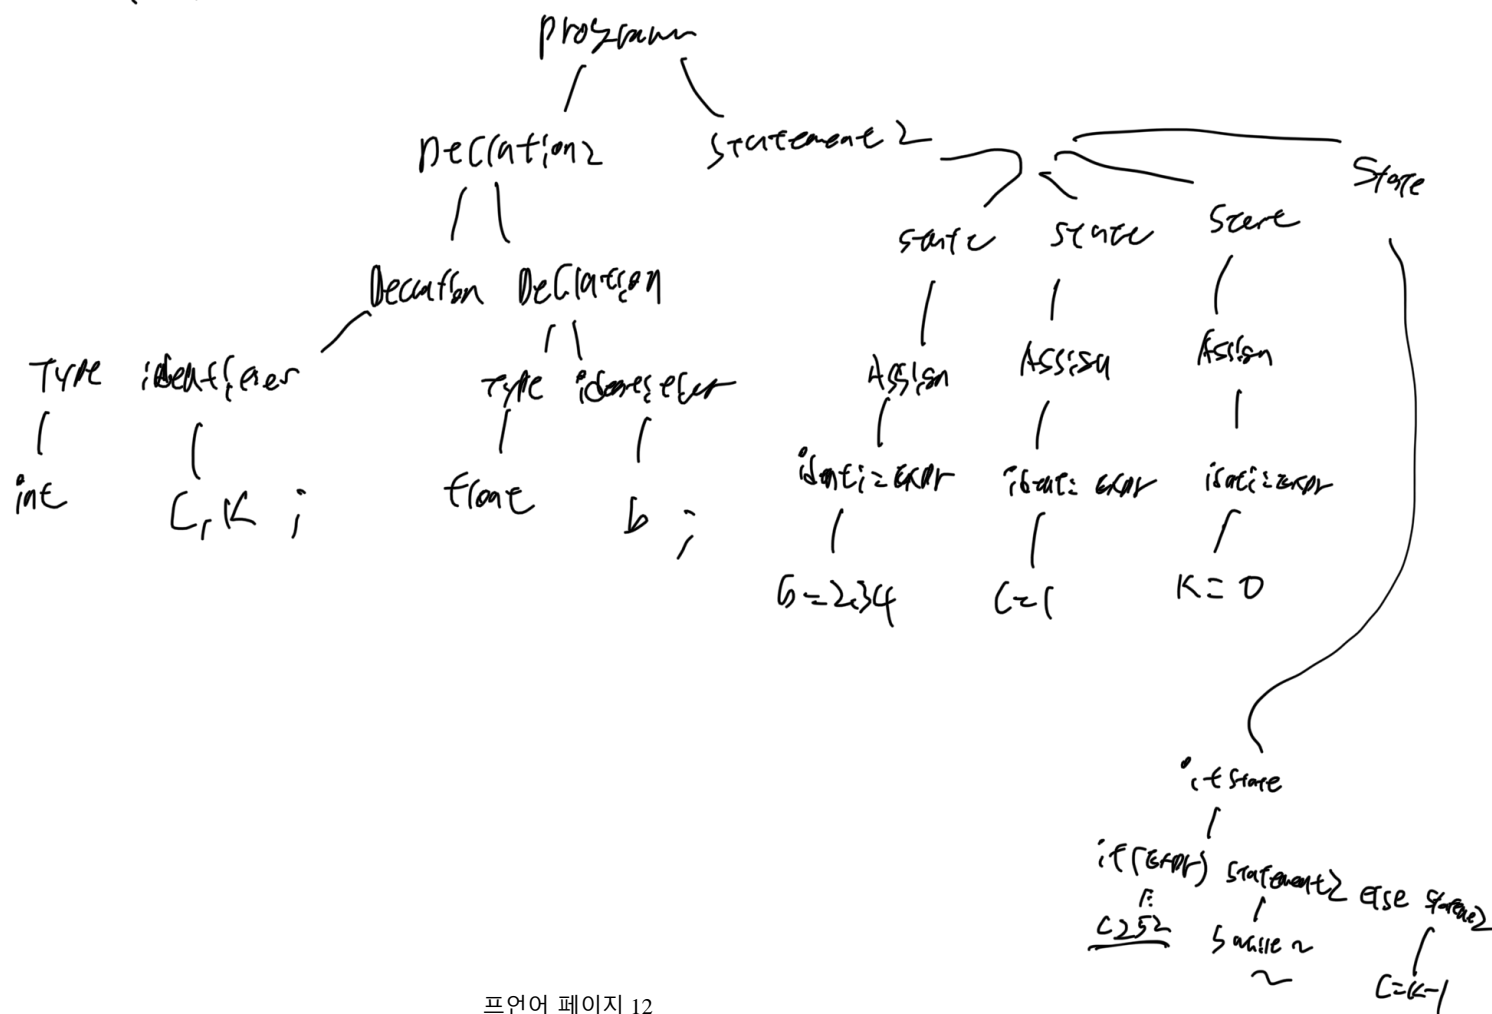 program
Declation2 Statement2
State
State State State
Declation Declation
Type identifier Type identifier
Assign Assign Assign
int C, K ; float b ;
identi = expr identi = expr identi = expr
b = 2.34 C = 1 K = 0
if State
if (expr) statement2 else statement2
C = K-1
프언어 페이지 12